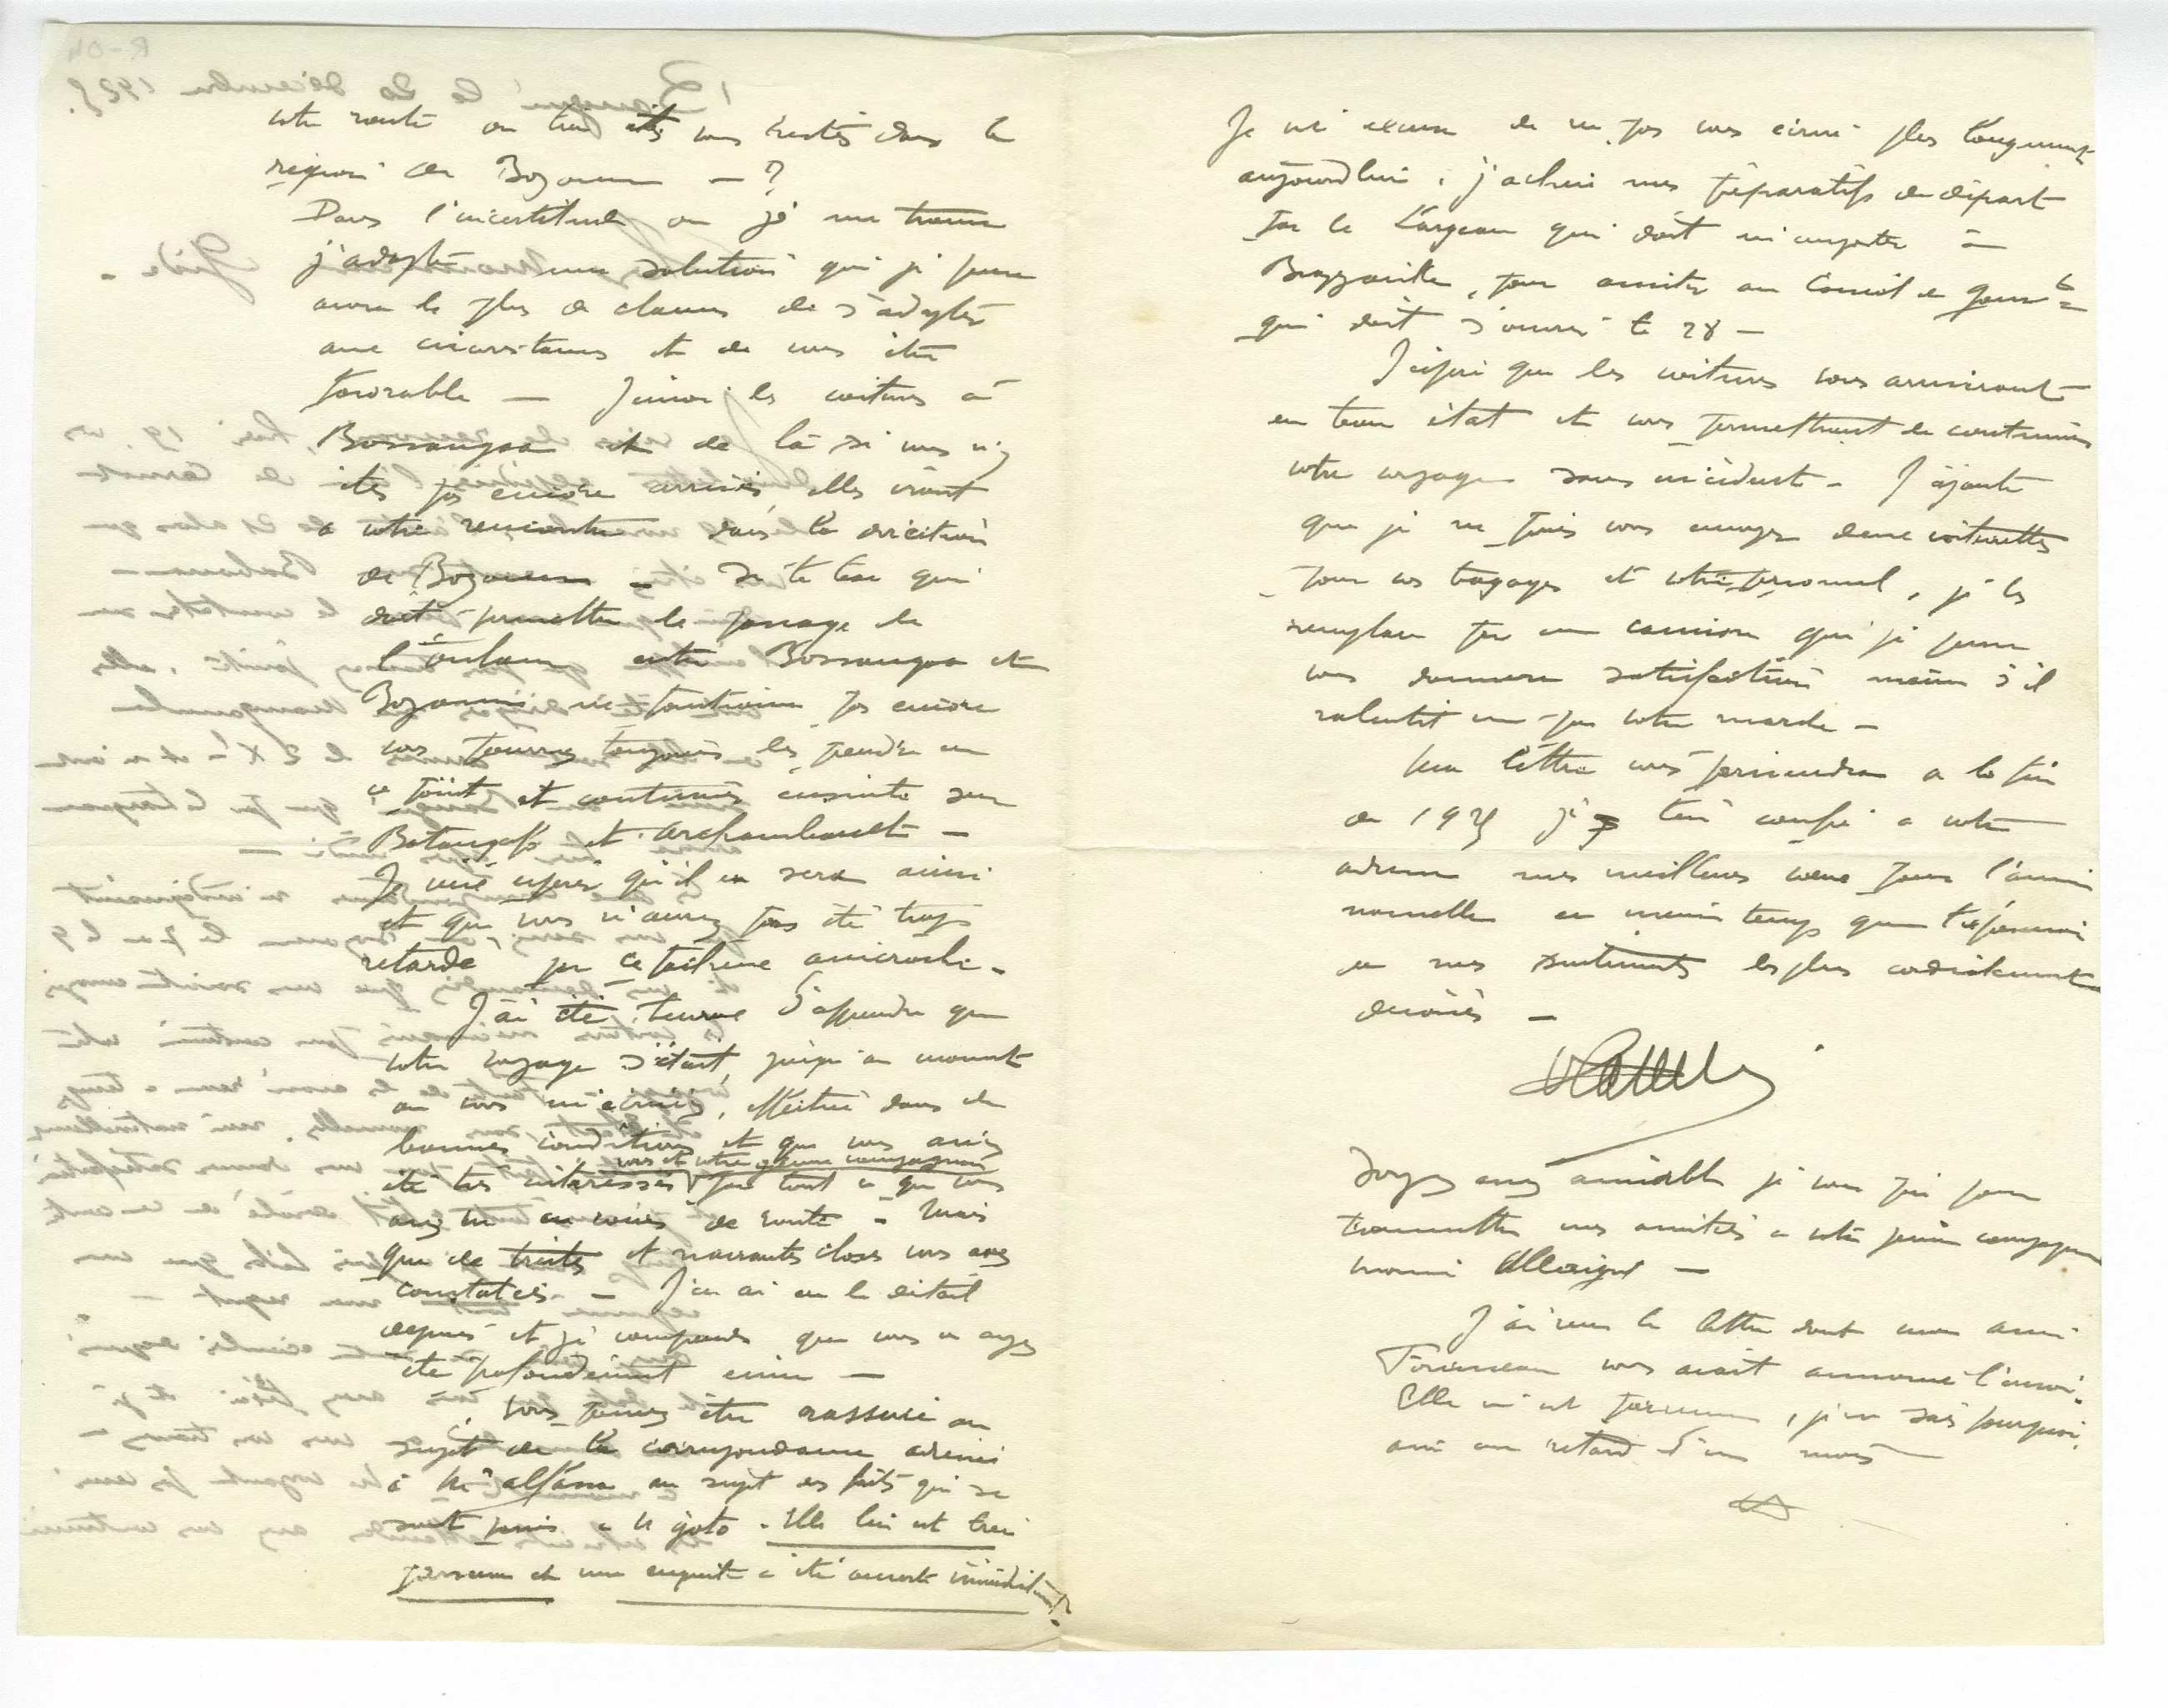 votre route ou bien êtes vous restés dans la
région de Bozoum — ?
Dans l'incertitude où je me trouve
j'adopte une solution que je pense
avoir le plus de chances de s'adapter
aux circonstances et de vous être
favorable — J'envoi les voitures à
Bossangoa et de là si vous n'y
êtes pas encore arrivés elles iront
a votre rencontre dans la direction
de Bozoum — Si le bac qui
doit permettre le passage de
l'Ouham entre Bossangoa et
Bozoum ne fonctionne pas encore
vous pourrez toujours les prendre en
ce point et continuer ensuite sur
Batangafo et Archambault —
Je veux espérer qu'il en sera ainsi
et que vous n'aurez pas été trop
retardé par ce fâcheux anicroche.
J'ai été heureux d'apprendre que
votre voyage s'était, jusqu'au moment
ou vous m'écriviez, effectué dans de
bonnes conditions et que vous aviez
été très intéressés vous et votre jeune compagnon par tout ce que vous
avez vu en cours de route — Mais
que de tristes et navrantes choses vous avez
constatées — J'en ai eu le détail
depuis et je comprends que vous en ayez
été profondément ému —
Vous pouvez être rassuré au
sujet de la correspondance adressée
à Mr Alfassa au sujet des faits qui se
sont passés a N'Goto. Elle lui est bien
parvenue et une enquête a été ouverte immédiatement.
Je m'excuse de ne pas vous écrire plus longuement
aujourd'hui, j'achève mes préparatifs de départ
par le Largeau qui doit m'emporter à
Brazzaville, pour assister au Conseil de Gouvt
qui doit s'ouvrir le 28 —
J'espère que les voitures vous arriveront
en bon état et vous permettront de continuer
votre voyage sans incident — J'ajoute
que je ne puis vous envoyer deux voiturettes
pour vos bagages et votre personnel, je les
remplace par un camion qui je pense
vous donnera satisfaction même s'il
ralentit un peu votre marche —
Ma lettre vous parviendra a la fin
de 1925 je confie a votre
adresse mes meilleurs vœux pour l'année
nouvelle en même temps que l'expression
de mes sentiments les plus cordialement
dévoués —
Soyez assez aimable je vous prie pour
transmettre mes amitiés a votre jeune compagnon
monsieur Allegret —
J'ai reçu la lettre dont mon ami
vous avait annoncé l'envoi.
Elle m'est parvenue, je ne sais pourquoi,
avec un retard d'un mois